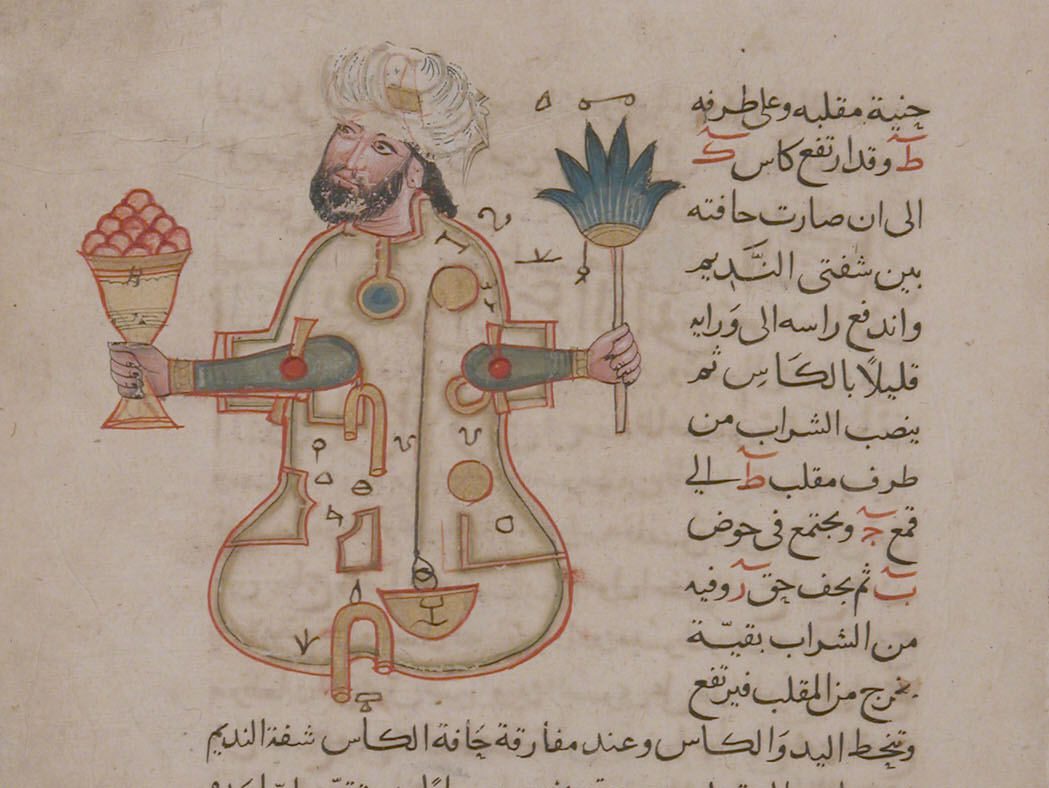 جنبية مقلبه وعلى طرفه
ط وقد ارتفع كاس ك
الى ان صارت حافته
بين شفتى النَّديم
واندفع راسه الى وَرايه
قليلًا بالكَاسِ ثم
ينصب الشراب من
طرف مقلب ط الي
قمع ج ويجتمع فى حوض
ب ثم يجف حق ر وفيه
من الشراب بقيّة
يخرج من المقلب فيرتفع
وتنحط اليد وَالكاس وعند مفارقة حَافة الكأس شفة النديم